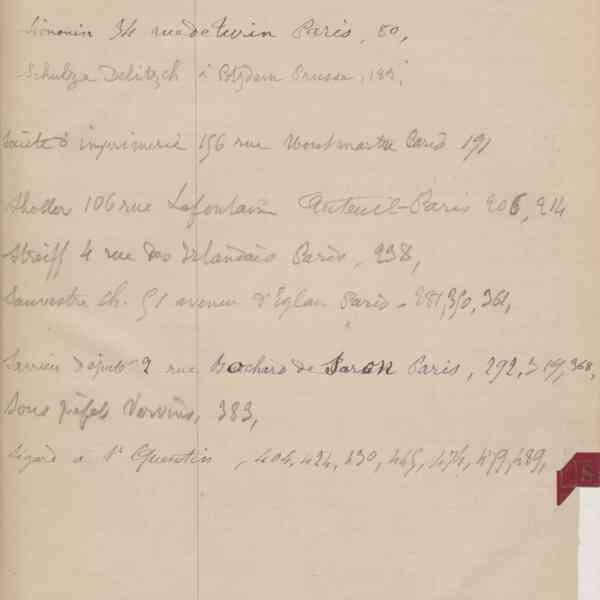 Simonin 34 rue de Turin Paris, 80,
Schultze Delitzch à Potzdam Prusse, 189,
Société d'imprimerie 156 rue Montmartre Paris 191
106 rue Lafontaine Auteuil-Paris 206, 214
Streiff 4 rue des Irlandais Paris, 238,
Sauvestre Ch. 51 avenue d'Eylau Paris, 281, 350, 361,
Sarrien député 2 rue Bochard de Saron Paris, 292, 319, 368,
Sous préfet Vervins, 383,
à St Quentin, 404, 424, 430, 445, 474, 479, 489,
S